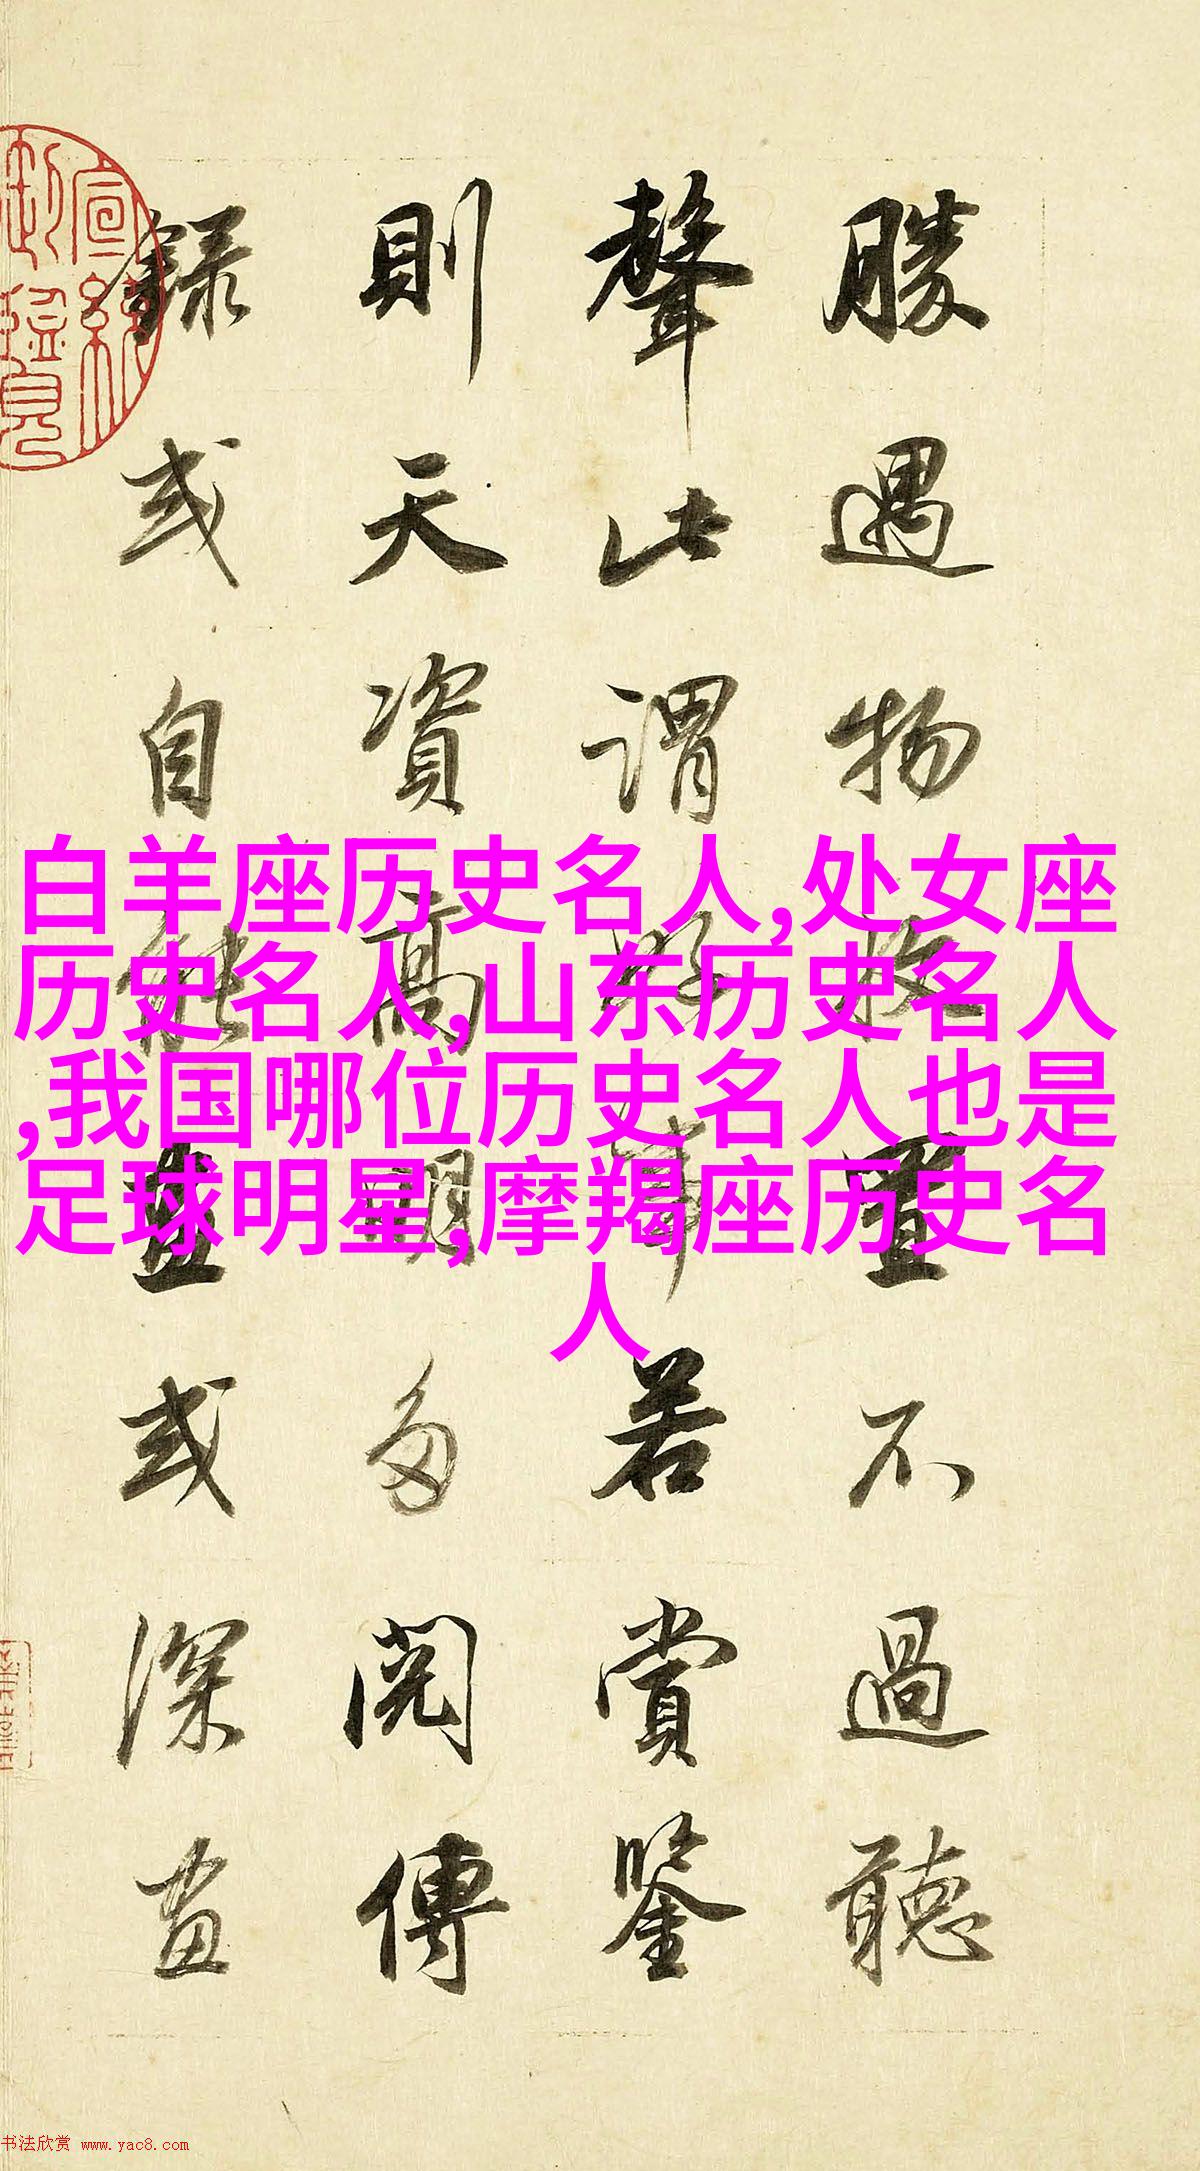 勝遇物收置不過聽
聲此謂好事若賞鑒
則天資高明多閱傳
錄或自能畫或深畫
白羊座历史名人,处女座
历史名人,山东历史名人
,我国哪位历史名人也是
足球明星,摩羯座历史名
人
书法欣赏 www.yac8.com